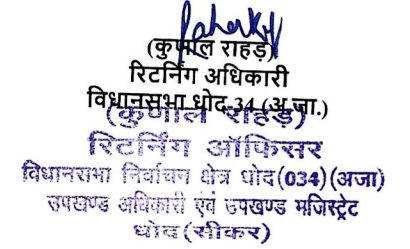 (कुणाल राहड़)
रिटर्निंग अधिकारी
विधानसभा धोद-34 (अ.जा.)
(कुणाल राहड़)
रिटर्निंग ऑफिसर
विधानसभा निर्वाचन क्षेत्र धोद(034)(अजा)
उपखण्ड अधिकारी एवं उपखण्ड मजिस्ट्रेट
धोद(सीकर)